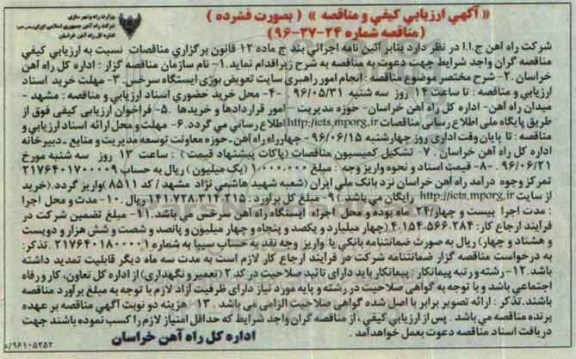 وزارت راه و شهرسازی
شرکت راه آهن جمهوری اسلامی ایران
اداره کل راه آهن خراسان
« آگهي ارزيابي كيفي و مناقصه » ( بصورت فشرده )
(مناقصه شماره ۲۴-۳۷-۹۶)
شرکت راه آهن ج.ا.ا در نظر دارد بنابر آئین نامه اجرائی بند ج ماده ۱۲ قانون برگزاري مناقصات نسبت به ارزيابي كيفي
مناقصه گران واجد شرايط جهت دعوت به مناقصه به شرح زیر اقدام نماید. ۱- نام سازمان مناقصه گزار : اداره کل راه آهن
خراسان ۲- شرح مختصر موضوع مناقصه : انجام امور راهبری سایت تعویض بوژی ایستگاه سرخس ۳- مهلت خرید اسناد
ارزیابی و مناقصه : تا ساعت ۱۴ روز سه شنبه ۹۶/۰۵/۳۱ ۴- محل خرید حضوري اسناد ارزيابي و مناقصه : مشهد -
میدان راه آهن- اداره کل راه آهن خراسان- حوزه مدیریت - امور قراردادها و خریدها ۵- فراخوان ارزيابي كيفي فوق از
طریق پایگاه ملي اطلاع رساني مناقصات http://iets.mporg.ir اطلاع رساني مي گردد. ۶- مهلت و محل ارائه اسناد ارزيابي و
مناقصه : تا پایان وقت اداري روز چهارشنبه ۹۶/۰۶/۱۵ -چهارراه راه آهن-حوزه معاونت توسعه مدیریت و منابع - دبیرخانه
اداره کل راه آهن خراسان . ۷- تشکیل کمیسیون مناقصات (پاكات پيشنهاد قيمت) : ساعت ۱۳ روز سه شنبه مورخ
۹۶/۰۶/۲۱. ۸- قيمت اسناد و نحوه واريز وجه : مبلغ ۱.۰۰۰.۰۰۰ (یک میلیون) ریال به حساب ۲۱۷۶۴۰۱۷۰۰۰۰۹
تمرکز وجوه درآمد راه آهن خراسان نزد بانک ملي ايران (شعبه شهيد هاشمي نژاد مشهد / کد ۸۵۱۱ )واریز گردد.(خريد
از سایت http://iets.mporg.ir رایگان می باشد.) ۹- مبلغ کل برآورد : ۱۴۱.۷۲۸.۳۱۴.۲۱۵ ریال ۱۰- مدت و محل اجرا
: مدت اجرا بیست و چهار/۲۴ ماه بوده و محل اجراء ایستگاه راه آهن سرخس می باشد. ۱۱- مبلغ تضمین شرکت در
فرآیند ارجاع کار: ۴.۱۵۴.۵۶۶.۲۸۴ (چهار میلیارد و یکصد و پنجاه و چهار میلیون و پانصد و شصت و شش هزار و دویست
و هشتاد و چهار) ریال به صورت ضمانتنامه بانکي يا واريز وجه نقد به حساب سیبا به شماره ۲۱۷۶۴۰۱۸۰۰۰۰۱ تذکر :
به درخواست مناقصه گزار ضمانتنامه شرکت در فرآیند ارجاع کار لازم است به مدت سه ماه دیگر قابلیت تمدید داشته
باشد. ۱۲- رشته و رتبه پیمانکار : پیمانکار باید دارای تائید صلاحیت در کد ۲ (تعمیر و نگهداری) از اداره کل تعاون، کار و رفاه
اجتماعی باشد و با توجه به گواهی صلاحیت در رشته و پایه مورد نیاز دارای ظرفیت آزاد لازم با توجه به مبلغ برآورد مناقصه
باشند. تذکر : ارائه تصویر برابر با اصل شده گواهی صلاحیت الزامی می باشد . ۱۳- هزینه دو نوبت آگهي مناقصه بر عهده
برنده مناقصه مي باشد . پس از ارزیابی کیفی ، از مناقصه گران واجد شرایط که حداقل امتیاز لازم را کسب نموده باشند جهت
دریافت اسناد مناقصه دعوت بعمل خواهد آمد .
اداره کل راه آهن خراسان
۹۶۱۰۵۲۵۲/د